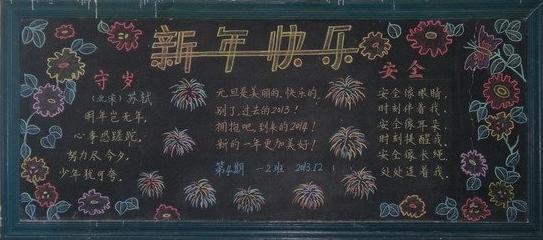 新年快乐
守岁
(北宋)苏轼
明年岂无年,
心事恐蹉跎,
努力尽今夕,
少年犹可夸.
元旦是美丽的、快乐的,
别了,过去的2013!
拥抱吧,到来的2014!
新的一年更加美好!
第4期 一2班 2013.12
安全
安全像眼睛,
时刻伴着我.
安全像耳朵,
时刻提醒我.
安全像长绳,
处处连着我.